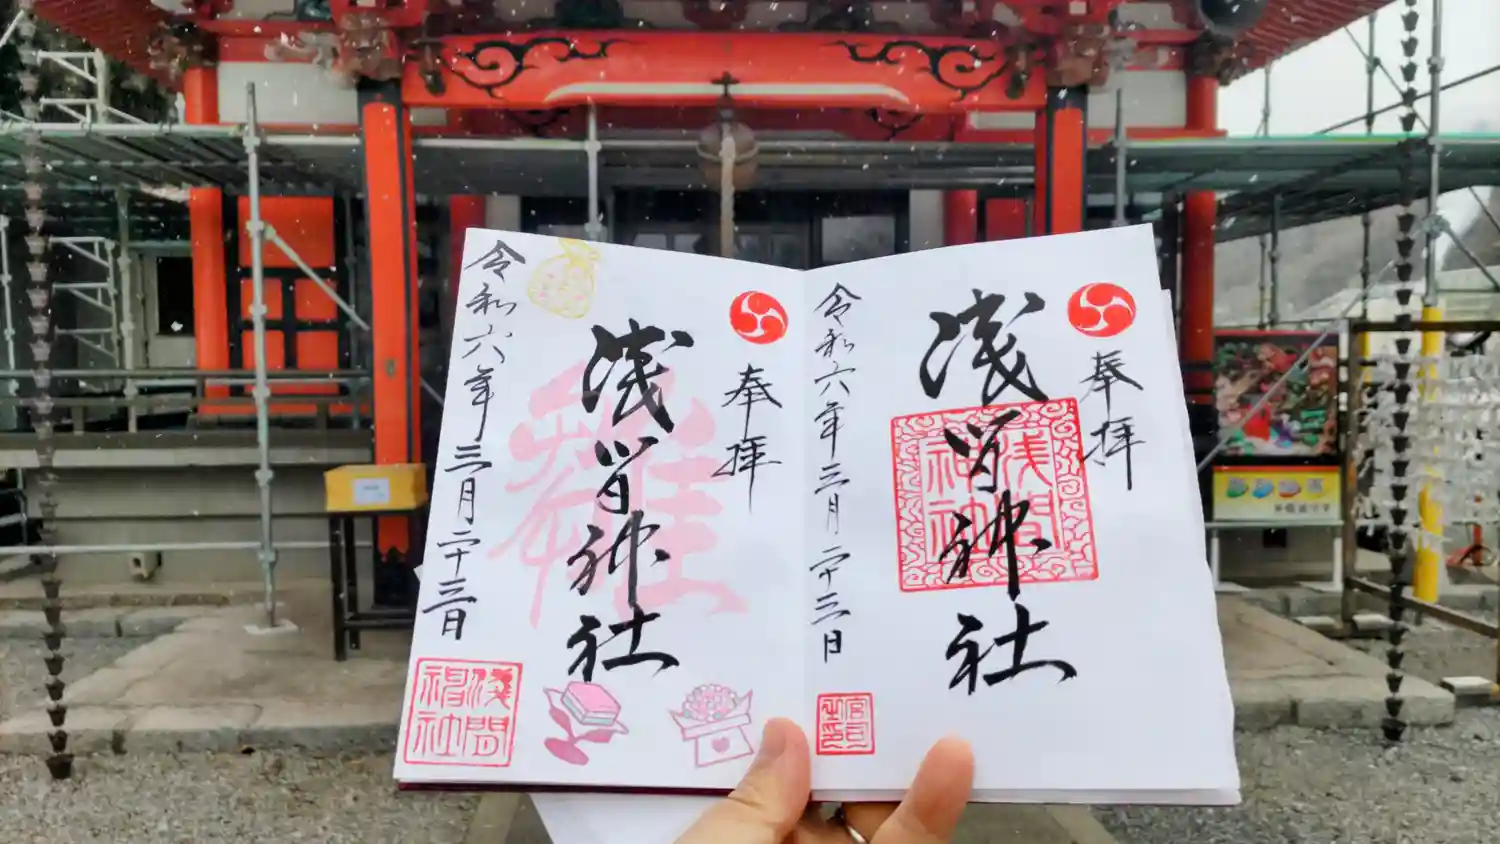 奉拝
浅間神社
浅間神社
令和六年三月二十三日
宮司之印
奉拝
雛
浅間神社
令和六年三月二十三日
浅間神社